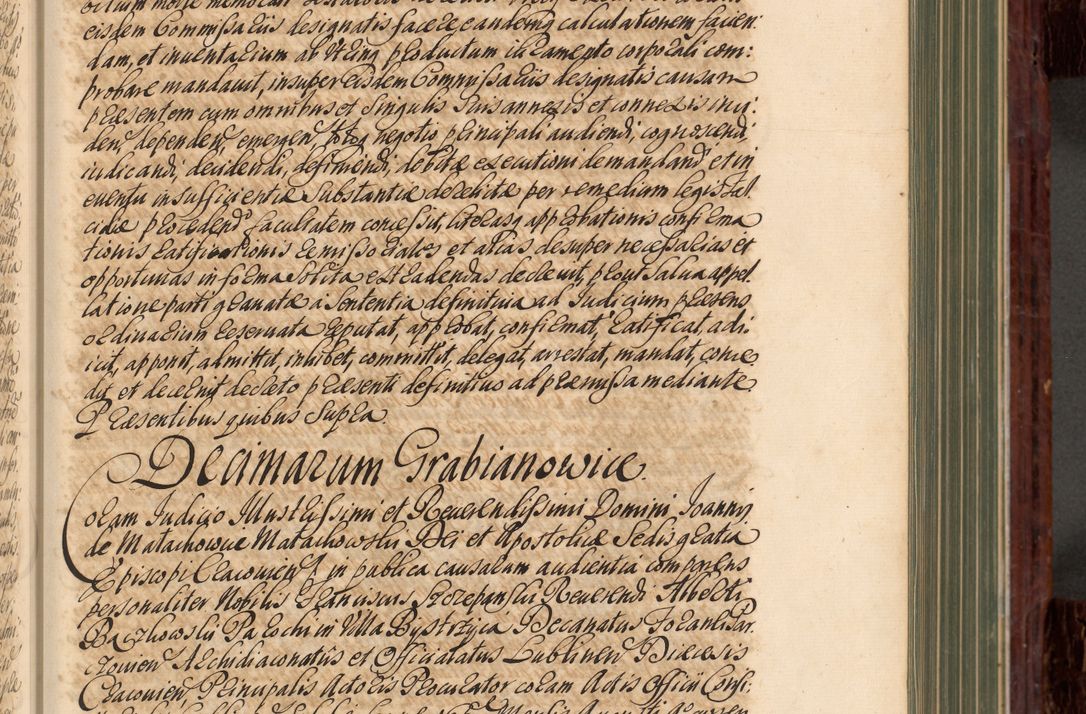 eisdem Commissariis designatis facere eandemq calculationem facien:
dam, et inventarium ab utrinq productum iuramento corporali com:
probare mandavit, insuper eisdem Commissariis designatis causam
praesentem cum omnibus et singulis suis annexis et connexis inci:
den, dependen, emergen, totoq negotio principali audiendi, cognoscendi,
iudicandi, decidendi, definiendi, debitae executioni demandandi et in
eventu insufficientiae substantiae derelictae per remedium legis Fal
cidiae procedendi facultatem concessit, literasq approbationis confirma
tionis ratificationis remissoriales et alias desuper necessarias et
opportunas in forma solita extradendas decrevit, prout salva appel
latione parti gravatae a sententia definitiva ad Iudicium praesens
ordinarium reservata deputat, approbat, confirmat, ratificat, adi
icit, apponit, admittit, inhibet, committit, delegat, arrestat, mandat, conce
dit et decernit decreto praesenti definitivo ad praemissa mediante
Praesentibus quibus supra.
Decimarum Grabianowice
Coram Iudicio Illustrissimi et Reverendissimi Domini Ioannis
de Małachowice Małachowski Dei et Apostolicae Sedis gratia
Episcopi Cracovien in publica causarum audientia comparens
personaliter Nobilis Franciscus Szczepanski Reverendi Alberti
Bączkowski Parochi in Villa Bystrzyca Decanatus Foranei Par
czovien Archidiaconatus et Officialatus Lublinen Diaecesis
Cracovien Principalis Actoris Procurator coram Actis Officii Consi: